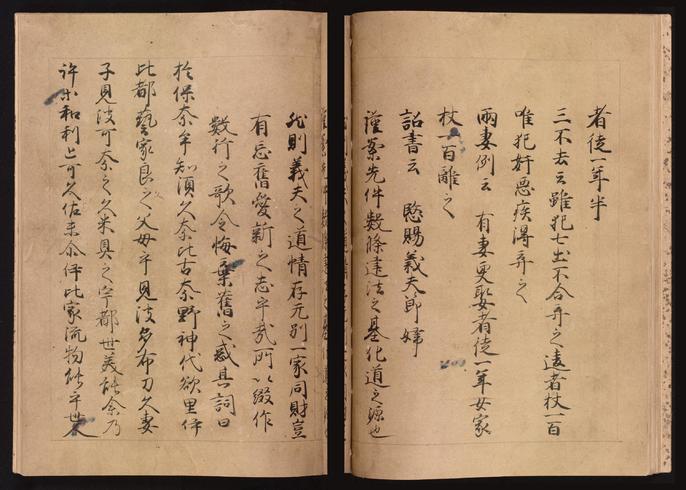 者徒一年半
三不去云雖犯七出不合弃之違者杖一百
唯犯奸惡疾得弃之
兩妻例云 有妻更娶者徒一年女家
杖一百離之
詔書云 愍賜義夫節婦
謹案先件數條建法之基化道之源也
然則義夫之道情存无別一家同財豈
有忘舊愛新之志乎哉所以綴作
數行之歌令悔棄舊之惑其詞曰
於保奈牟知須久奈比古奈野神代欲里伊
比都藝家良之父母乎見波多布刀久妻
子見波可奈之久米具之宇都世美能余乃
許等和利止可久佐末尓伊比家流物能乎世人